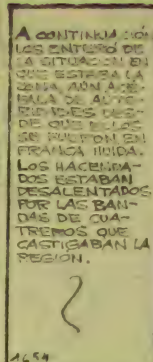 A CONTINUACIÓN
LOS ENTERÓ DE
LA SITUACIÓN EN
QUE ESTABA LA
ZONA, AÚN ACÉ-
FALA DE AUTO-
RIDADES DES-
DE QUE ELLOS
SE PUSIERON EN
FRANCA HUIDA.
LOS HACENDA-
DOS ESTABAN
DESALENTADOS
POR LAS BAN-
DAS DE CUA-
TREROS QUE
CASTIGABAN LA
REGIÓN.